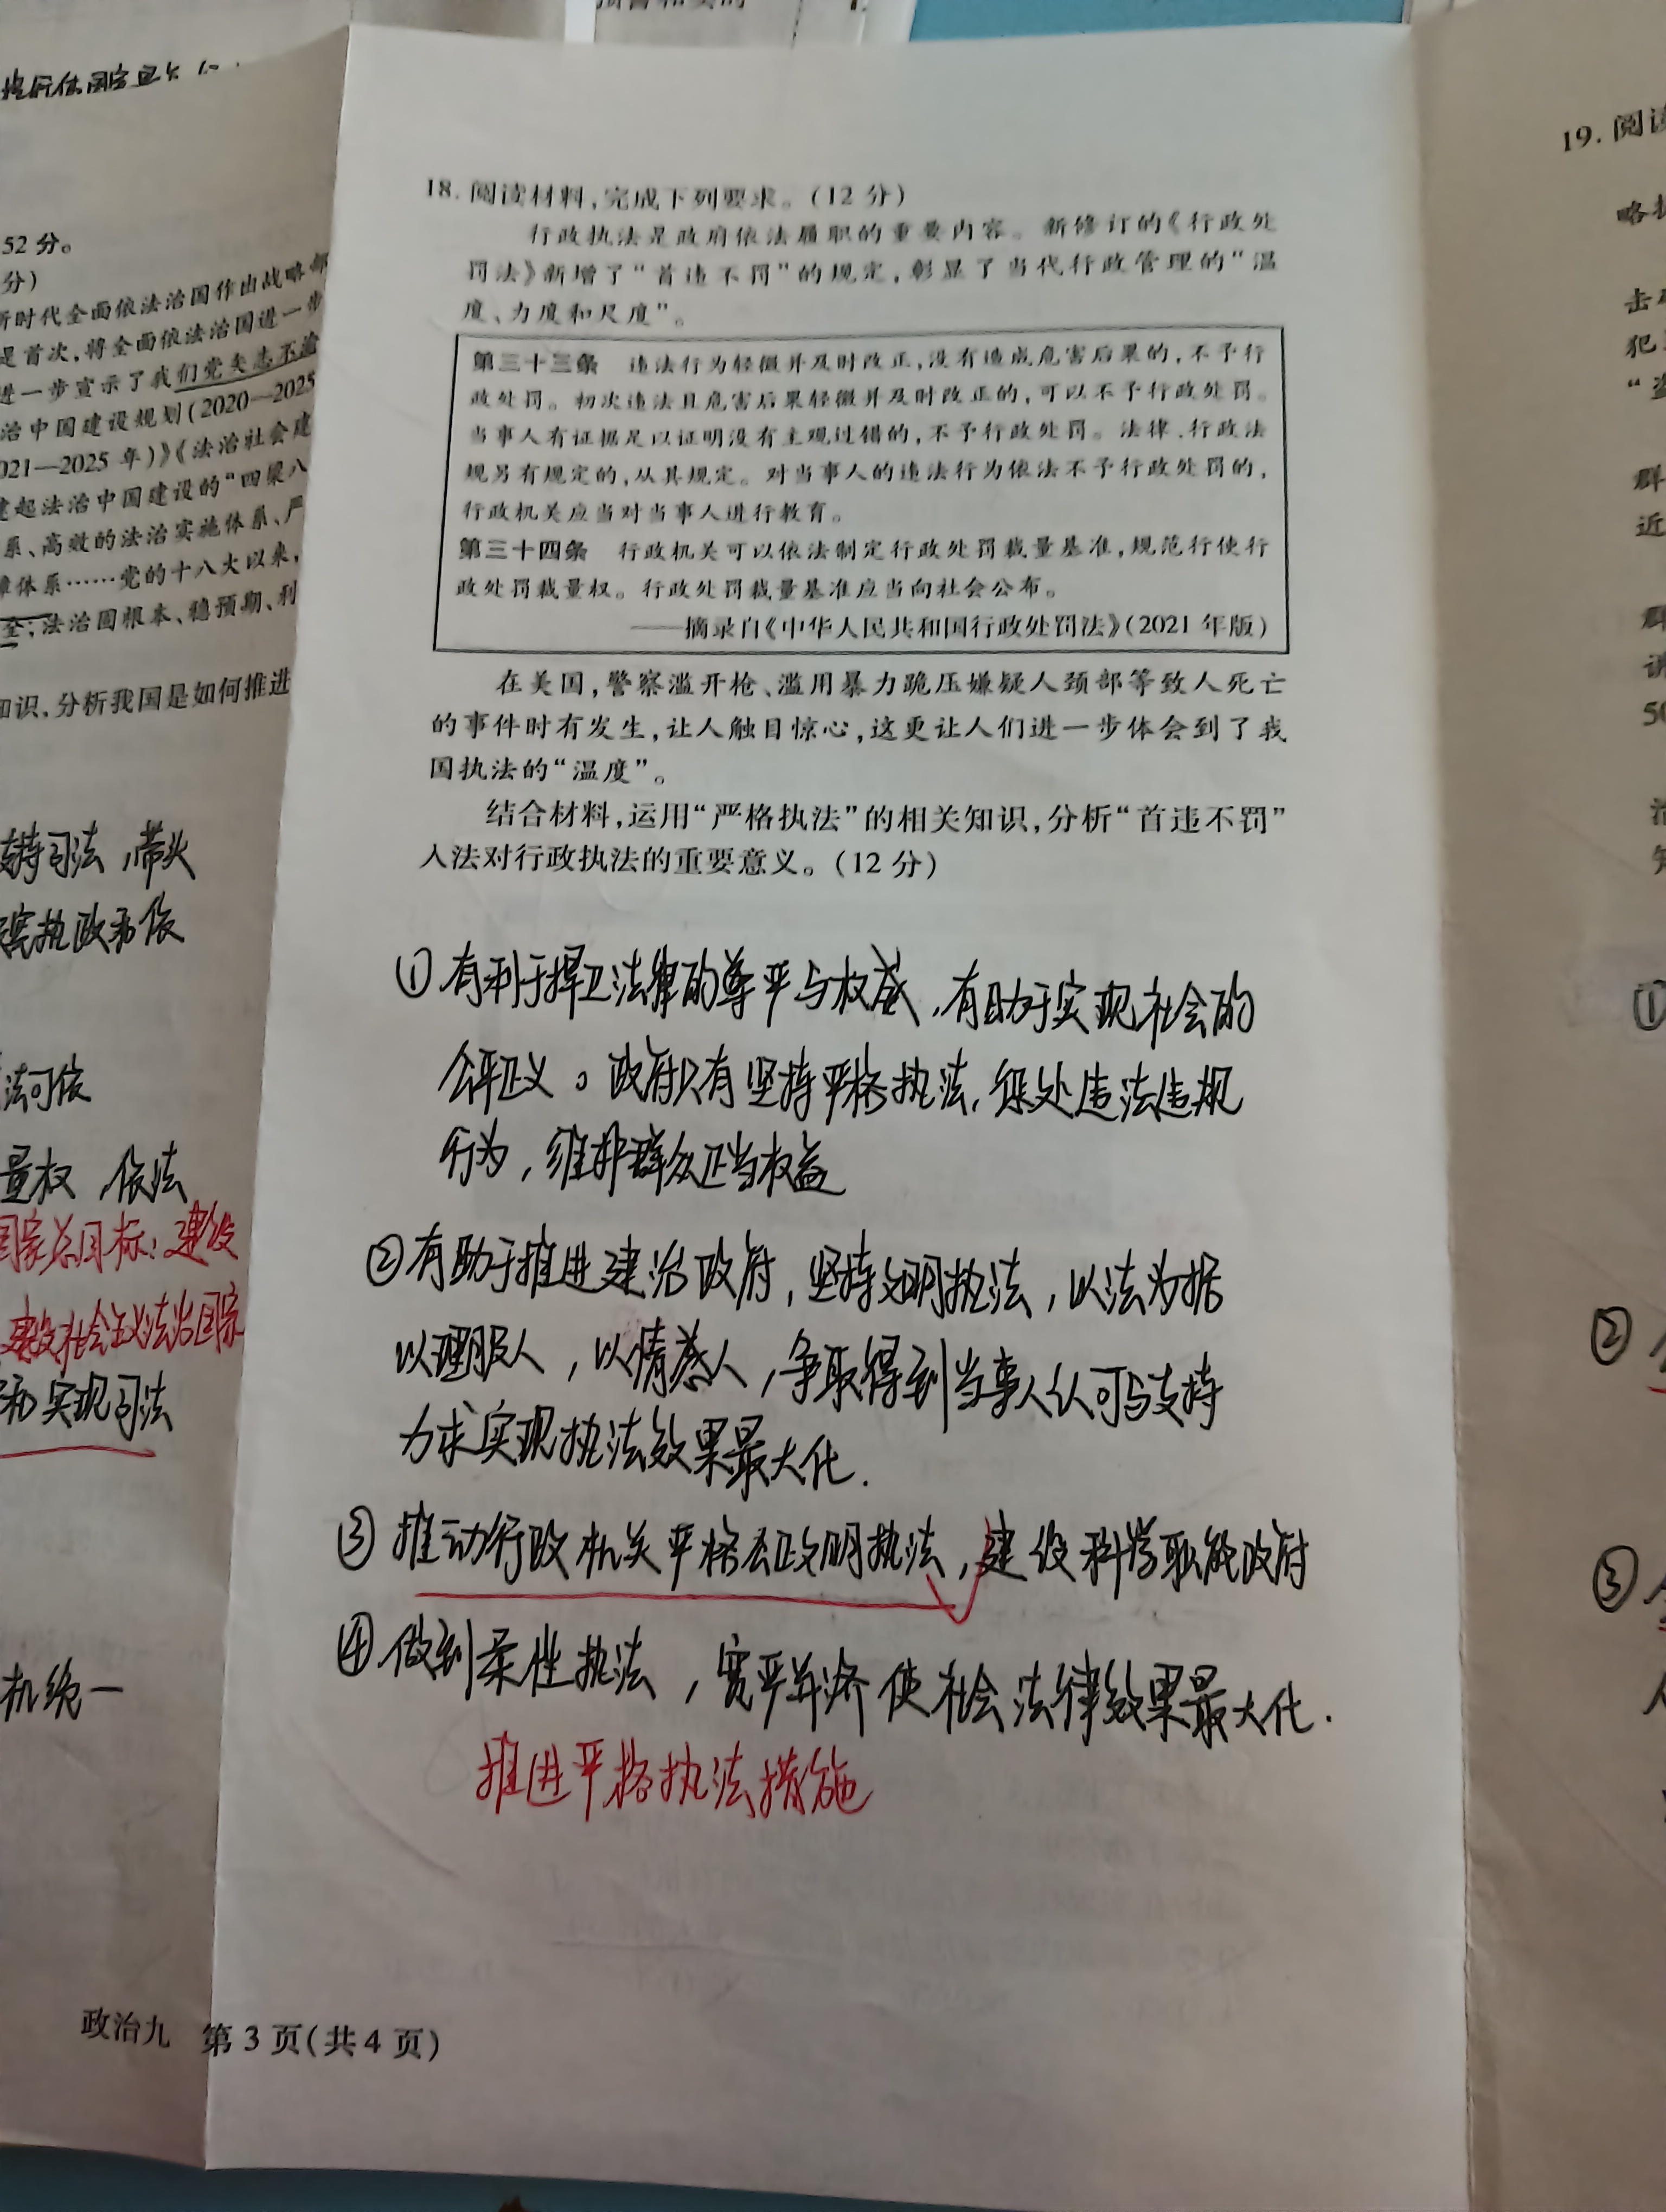 52分。
分)
新时代全面依法治国作出战略部
是首次,将全面依法治国进一步
进一步宣示了我们党矢志不渝
治中国建设规划(2020—2025
021—2025年)》《法治社会建
建起法治中国建设的“四梁八
系、高效的法治实施体系、严
障体系……党的十八大以来,
全;法治固根本、稳预期、利
知识,分析我国是如何推进
支持司法,带头
宪执政和依
法可依
量权,依法
国家总目标:建设
建设社会主义法治国家
和实现司法
机统一
18.阅读材料,完成下列要求。(12分)
行政执法是政府依法履职的重要内容。新修订的《行政处
罚法》新增了“首违不罚”的规定,彰显了当代行政管理的“温
度、力度和尺度”。
第三十三条 违法行为轻微并及时改正,没有造成危害后果的,不予行
政处罚。初次违法且危害后果轻微并及时改正的,可以不予行政处罚。
当事人有证据足以证明没有主观过错的,不予行政处罚。法律、行政法
规另有规定的,从其规定。对当事人的违法行为依法不予行政处罚的,
行政机关应当对当事人进行教育。
第三十四条 行政机关可以依法制定行政处罚裁量基准,规范行使行
政处罚裁量权。行政处罚裁量基准应当向社会公布。
——摘录自《中华人民共和国行政处罚法》(2021年版)
在美国,警察滥开枪、滥用暴力跪压嫌疑人颈部等致人死亡
的事件时有发生,让人触目惊心,这更让人们进一步体会到了我
国执法的“温度”。
结合材料,运用“严格执法”的相关知识,分析“首违不罚”
入法对行政执法的重要意义。(12分)
①有利于捍卫法律的尊严与权威,有助于实现社会的
公平正义。政府只有坚持严格执法,惩处违法违规
行为,维护群众正当权益
②有助于推进建治政府,坚持文明执法,以法为据
以理服人,以情感人,争取得到当事人认可与支持
力求实现执法效果最大化.
③推动行政机关严格公正文明执法,建设科学职能政府
④做到柔性执法,宽严并济使社会法律效果最大化.
推进严格执法措施
政治九 第3页(共4页)
19.阅读
①
②
③